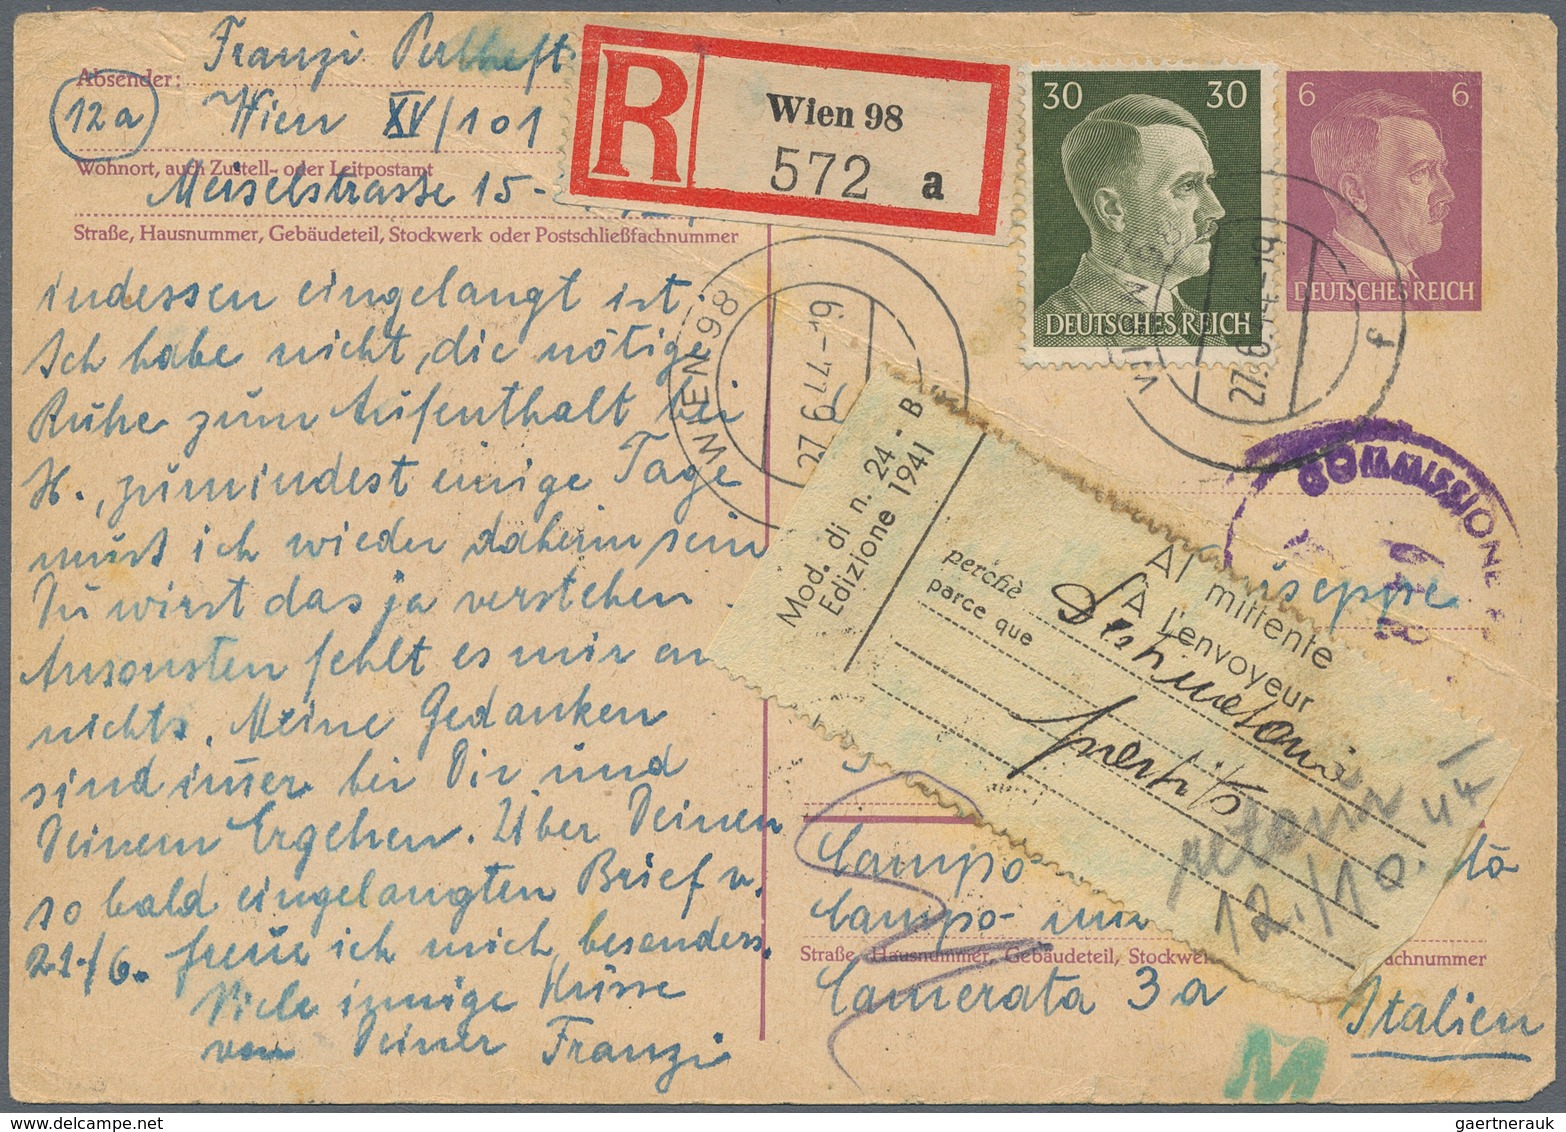 Absender:
Franzi
12a
Wien XV/101
Wohnort, auch Zustell- oder Leitpostamt
Meiselstrasse 15-
Straße, Hausnummer, Gebäudeteil, Stockwerk oder Postschließfachnummer
R
Wien 98
572 a
30 30
DEUTSCHES REICH
6 6
DEUTSCHES REICH
WIEN 98
27.6.44-19
27.6.44-19
f
indessen eingelangt ist.
Ich habe nicht, die nötige
Ruhe zum Aufenthalt bei
H., zumindest einige Tage
muss ich wieder daheim sein
Du wirst das ja verstehen.
Ansonsten fehlt es mir an
nichts. Meine Gedanken
sind im̄er bei Dir und
Deinem Ergehen. Über Deinen
so bald eingelangten Brief v.
21./6. freue ich mich besonders.
Viele innige Küsse
von Deiner Franzi
COMMISSIONE
Mod. di n. 24 - B
Edizione 1941
Al mittente
À l'envoyeur
perchè
parce que
retour
12./10. 44
iseppe
Campo
Campo-
Straße, Hausnummer, Gebäudeteil, Stockwer
achnummer
Camerata 3a
Italien
M
gaertnerauk